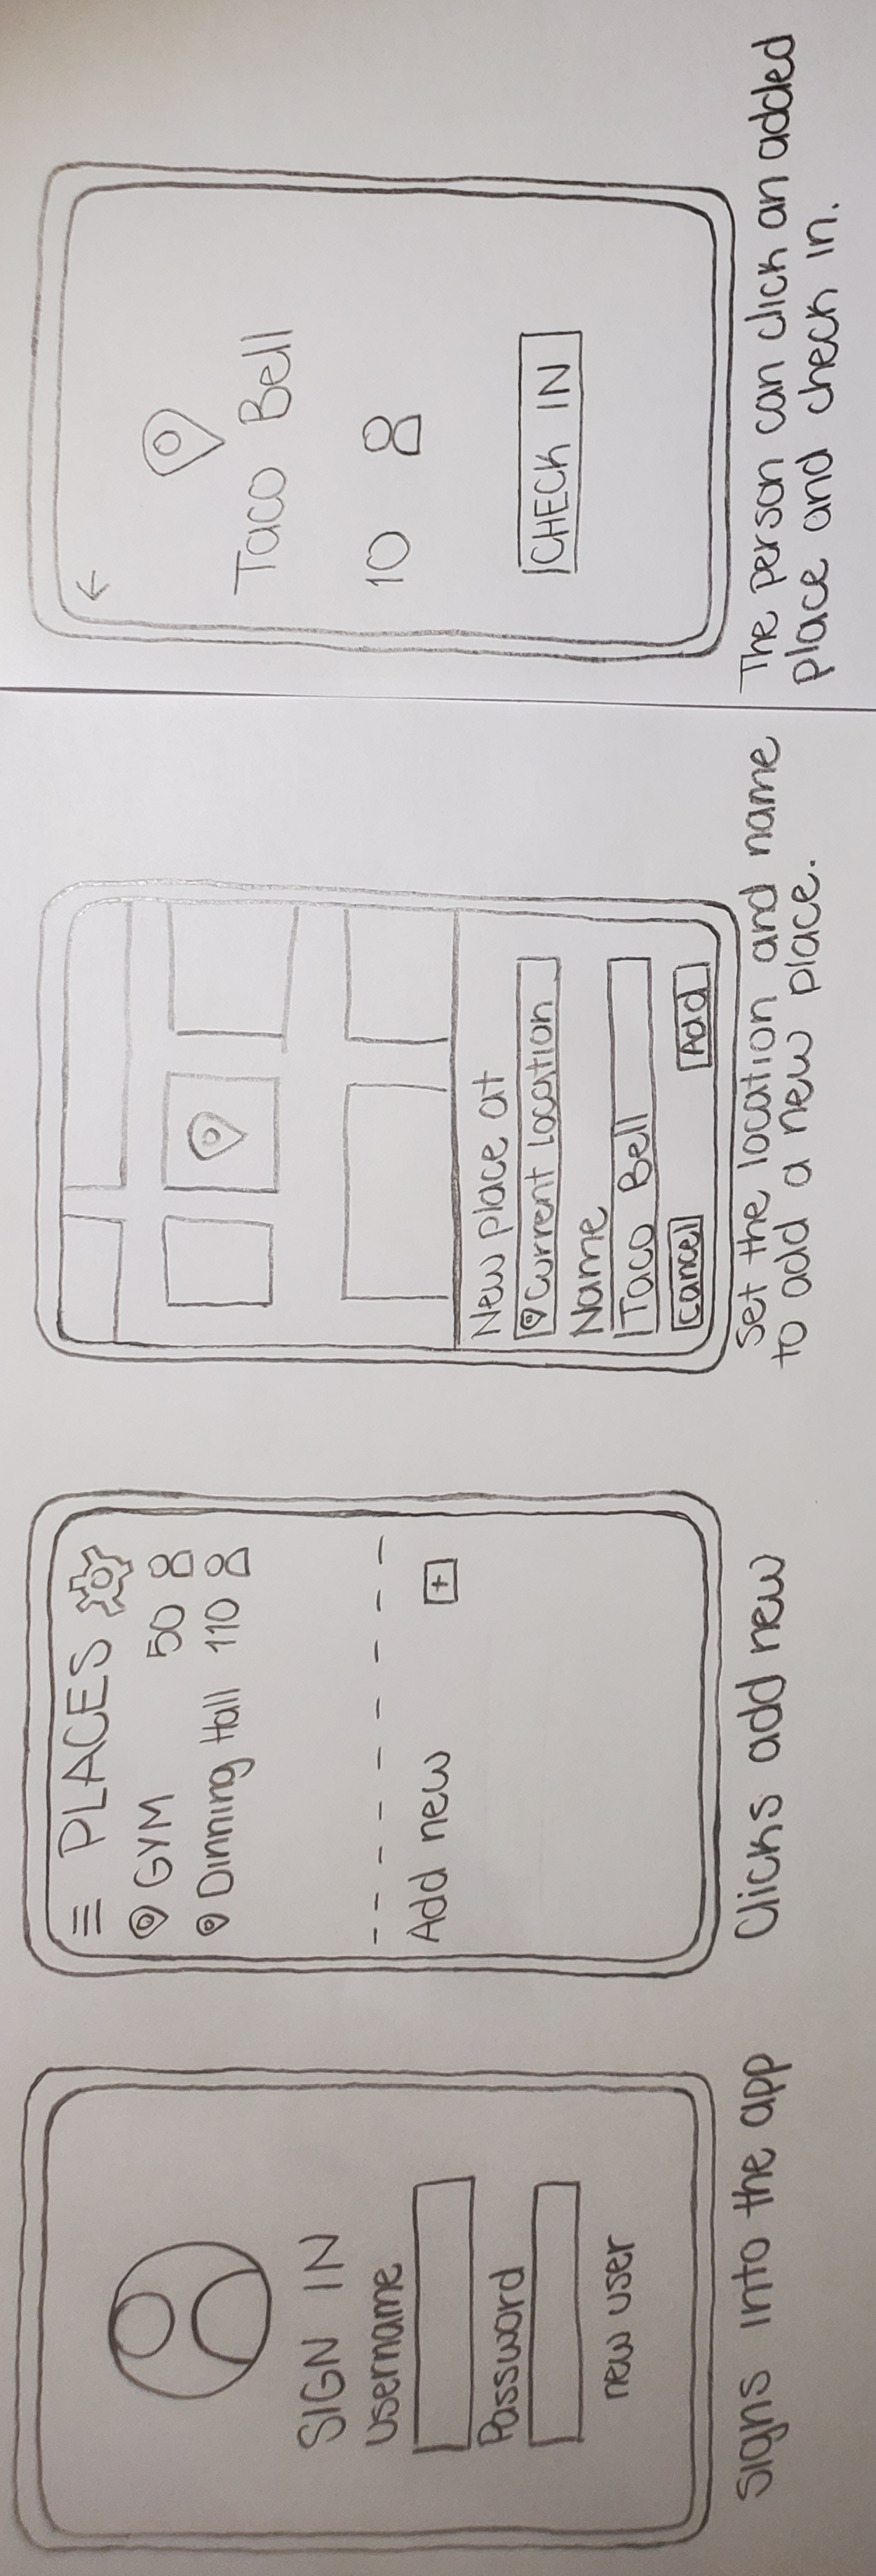 SIGN IN
username
Password
new user
Signs into the app
PLACES
GYM 50
Dinning Hall 110
Add new +
Clicks add new
New place at
Current Location
Name
Taco Bell
Cancel Add
Set the location and name
to add a new place.
←
Taco Bell
10
CHECK IN
The person can click an added
place and check in.